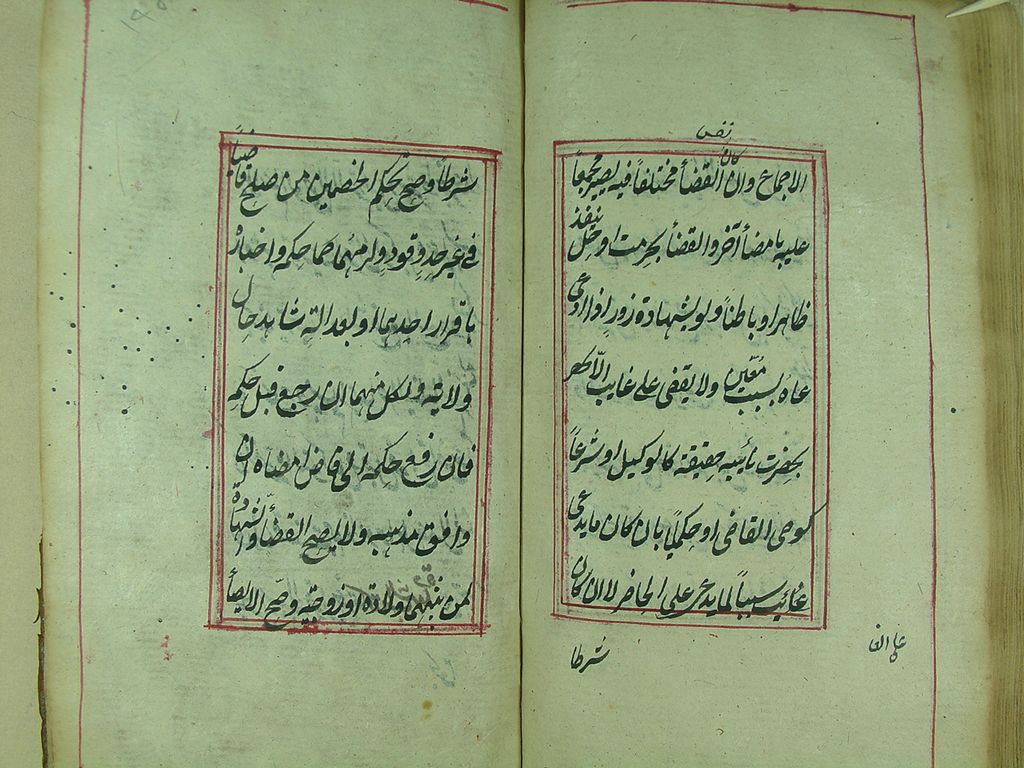 نفس
كان
الاجماع وان القضأ مختلفاً فيه يصير مجمعاً
عليه بامضأ آخر والقضأ بحرمت او حل ينفذ
ظاهرا و باطناً ولو بشهادة زور اذا ادعى
عاه بسبب معين ولا يقضى على غايب الا
بحضرت نائبيه حقيقة كالوكيل او شرعاً
كوصى القاضى او حكمياً بان كان ما يدعى
غائب سبباً لما يدعى على الحاضر لا ان كان
شرطا
على الغا
شرطاً وصح تحكيم الخصمين من صلح قاضياً
فى غير حد و قود ولزمهما حكمه و اخباره
باقرار احدهما او بعدالته شاهد حال
ولايته ولكل منهما ان رجع قبل حكمه
فان رفع حكمه الى قاض امضاه ان
وافق مذهبه ولا يصح القضأ والشهادة
لمن بينهما ولادة او زوجية وصح الايصأ